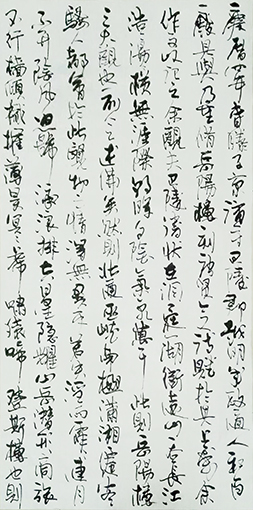 慶曆四年春滕子京謫守巴陵郡越明年政通人和百
廢具興乃重修岳陽樓刻唐賢今人詩賦於其上屬余
作文以記之余觀夫巴陵勝狀在洞庭一湖銜遠山吞長江
浩浩湯湯橫無涯際朝暉夕陰氣象萬千此則岳陽樓
之大觀也前人之述備矣然則北通巫峽南極瀟湘遷客
騷人多會於此覽物之情得無異乎若夫淫雨霏霏連月
不開陰風怒號濁浪排空日星隱耀山岳潛形商旅
不行檣傾楫摧薄暮冥冥虎嘯猿啼登斯樓也則